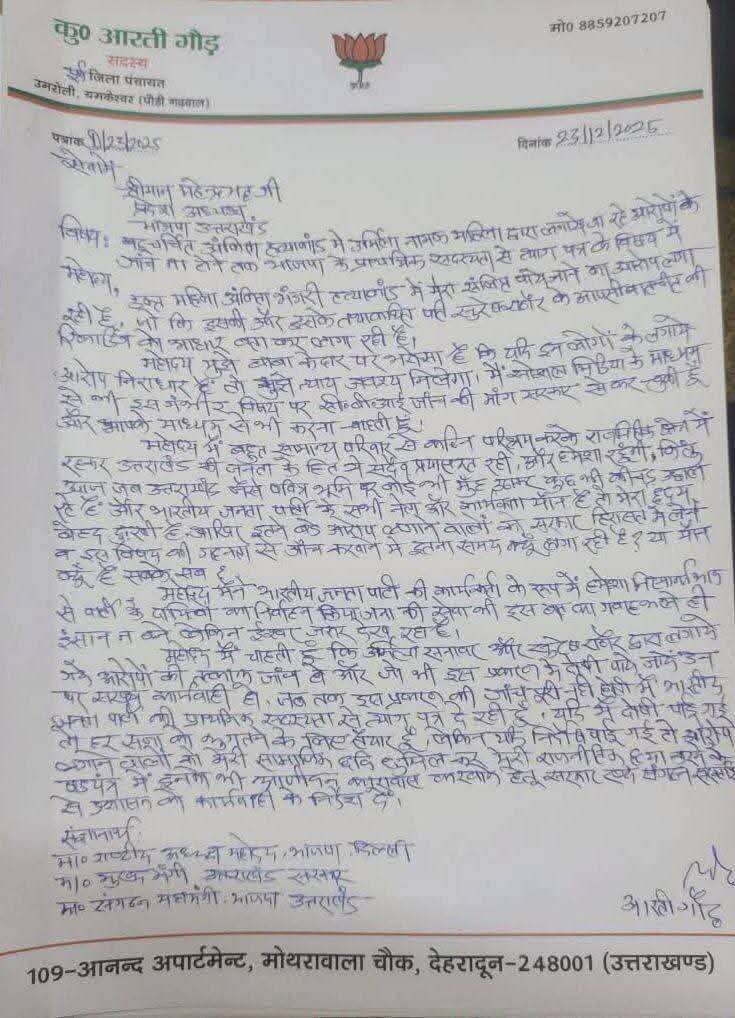 कु0 आरती गौड़
मो0 8859207207
सदस्य
पूर्व जिला पंचायत
उमरोली, यमकेश्वर (पौड़ी गढ़वाल)
पत्रांक 01/23/2025
दिनांक 23/12/2025
सेवा में
श्रीमान महेन्द्र भट्ट जी
प्रदेश अध्यक्ष
भाजपा उत्तराखंड
विषय: बहुचर्चित अंकिता हत्याकांड में उर्मिला नामक महिला द्वारा लगाये जा रहे आरोपों के
जांच ना होने तक भाजपा के प्राथमिक सदस्यता से त्याग पत्र के विषय में
महोदय,
उक्त महिला अंकिता भंडारी हत्याकांड में मेरा संलिप्त होने का आरोप लगा
रही है, जो कि इसकी और इसके तथाकथित पति सुरेश राठौर के आपसी बातचीत की
रिकॉर्डिंग को आधार बना कर लगा रही है।
महोदय मुझे बाबा केदार पर भरोसा है कि यदि इन लोगों के लगाये
आरोप निराधार हैं तो मुझे न्याय अवश्य मिलेगा। मैं सोशल मिडिया के माध्यम
से भी इस गंभीर विषय पर सी०बी०आई जांच की मांग सरकार से कर चुकी हूँ
और आपके माध्यम से भी करना चाहती हूँ।
महोदय मैं बहुत सामान्य परिवार से कठिन परिश्रम करके राजनितिक क्षेत्र में
रहकर उत्तराखंड की जनता के हित में सदैव प्रयासरत रही, और हमेशा रहूँगी, किन्तु
आज जब उत्तराखंड जैसे पवित्र भूमि पर कोई भी मुँह उठाकर कुछ भी कीचड़ उछाल
रहे हैं और भारतीय जनता पार्टी के सभी नेता और कार्यकर्ता मौन हैं तो मेरा हृदय
बेहद दुःखी है, आखिर इतने बड़े आरोप लगाने वालों को सरकार हिरासत में लेने
व इस विषय की गहनता से जाँच करवाने में इतना समय क्यूँ लगा रही है? या मौन
क्यूँ है सबके सब?
महोदय मैंने भारतीय जनता पार्टी की कार्यकर्ता के रूप में हमेशा निस्वार्थ भाव
से पार्टी के दायित्वों का निर्वहन किया, जनता की सेवा की इस बात का गवाह भले ही
इंसान न बने लेकिन ईश्वर जरूर देख रहा है।
महोदय मैं चाहती हूँ कि उर्मिला सनावर और सुरेश राठौर द्वारा लगाये
गये आरोपों की तत्काल जांच हो और जो भी इस प्रकरण में दोषी पाये जायें उन
पर सख्त कार्यवाही हो, जब तक इस प्रकरण की जांच पूरी नहीं होती मैं भारतीय
जनता पार्टी की प्राथमिक सदस्यता से त्याग पत्र दे रही हूँ, यदि मैं दोषी पाई गई
तो हर सजा को भुगतने के लिए तैयार हूँ, लेकिन यदि निर्दोष पाई गई तो आरोप
लगाने वालों को मेरी सामाजिक छवि धूमिल कर मेरी राजनीतिक हत्या करने के
षड्यंत्र में इनको भी कारावास करवाने हेतु सरकार एवं संगठन
से प्रशासन को कार्यवाही के निर्देश दें।
संज्ञानार्थ
मा० राष्ट्रीय अध्यक्ष महोदय, भाजपा दिल्ली
मा० मुख्य मंत्री उत्तराखंड सरकार
मा० संगठन महामंत्री, भाजपा उत्तराखंड
आरती गौड़
109-आनन्द अपार्टमेन्ट, मोथरावाला चौक, देहरादून-248001 (उत्तराखण्ड)